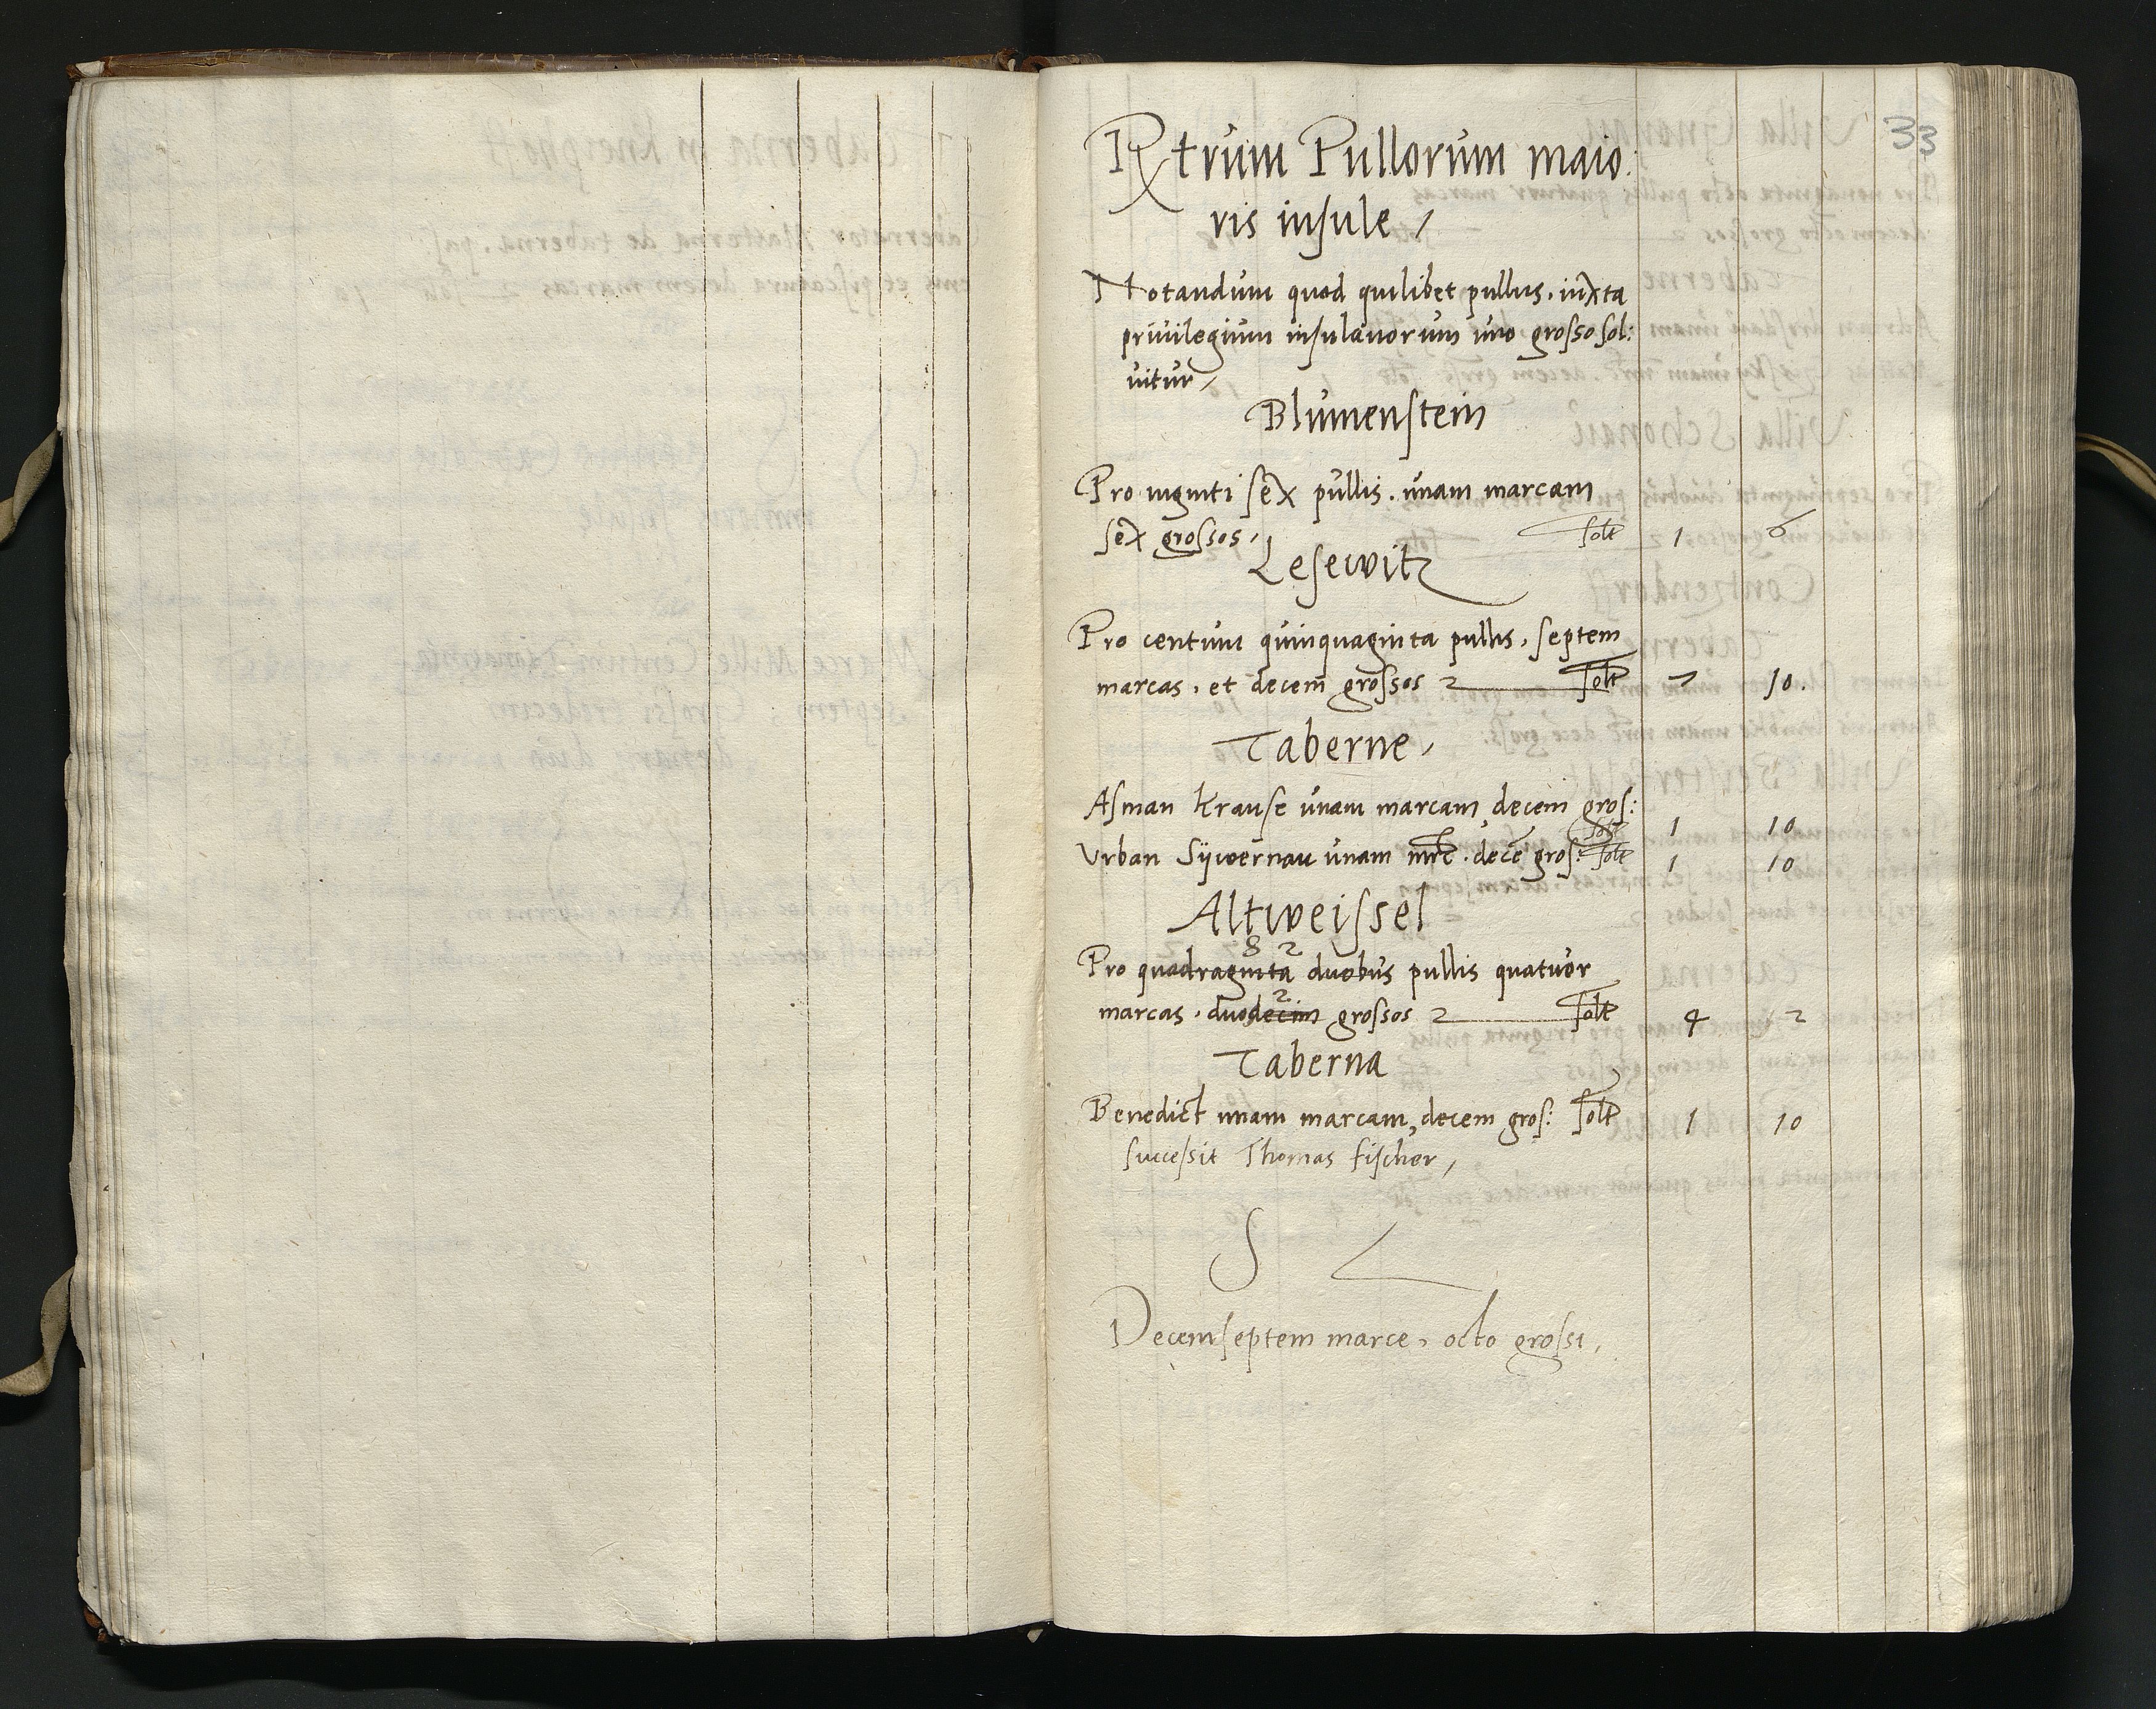 33
Rxtrum Pullorum maio:
ris insule,
Notandum quod quilibet pullus, iuxta
priuilegium insulanorum uno grosso sol:
uitur,
Blumenstein
Pro uiginti sex pullis. unam marcam
sex grossos, solt 1 6
Lesewitz
Pro centum quinquaginta pullis, septem
marcas, et decem grossos solt 7 10.
Taberne,
Asman Krause unam marcam, decem gros: solt 1 10
Urban Sywernau unam mrc. dece gros: solt 1 10
Altweissel
8 2
Pro quadraginta duobus pullis quatuor
2
marcas, duodecim grossos solt 4 2
Taberna
Benedict unam marcam, decem gros: solt 1 10
Successit Thomas Fischer,
S
Decemseptem marce, octo grossi,